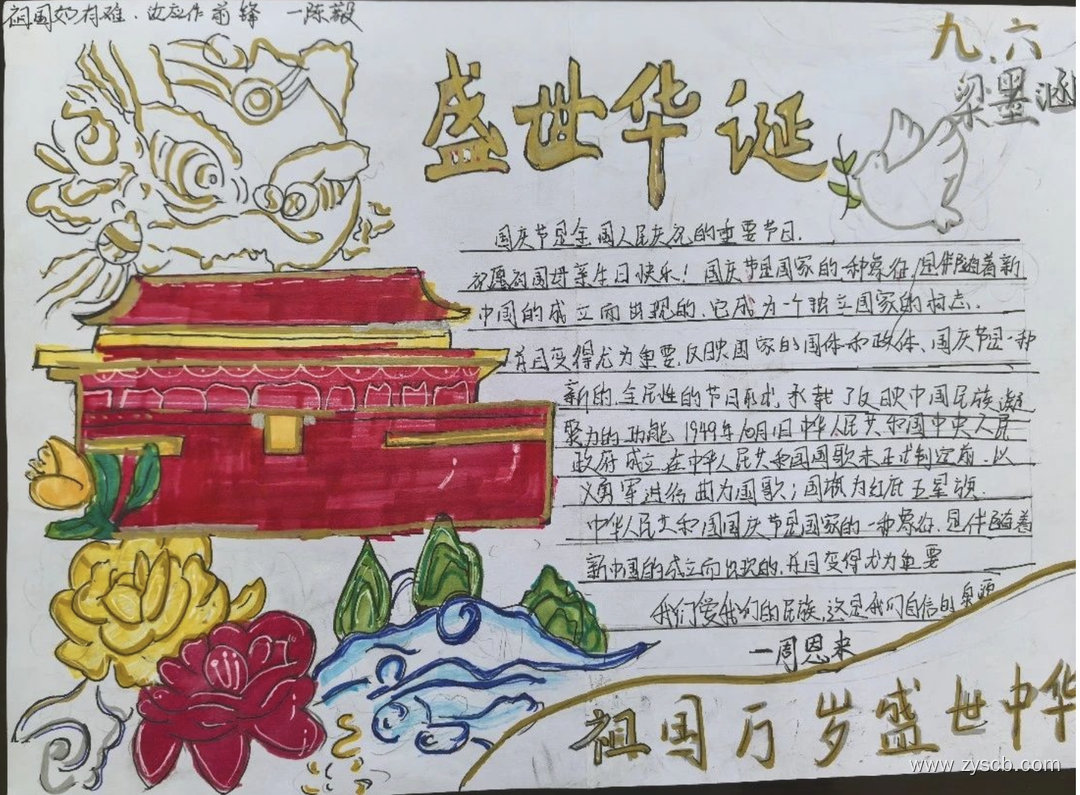 祖国如有难,汝应作前锋 —陈毅
九、六
梁墨涵
盛世华诞
国庆节是全国人民庆祝的重要节日.
祝愿祖国母亲生日快乐!国庆节是国家的一种象征,是伴随着新
中国的成立而出现的、它成为一个独立国家的标志.
并且变得尤为重要,反映国家的国体和政体、国庆节是一种
新的、全民性的节日形式,承载了反映中国民族凝
聚力的功能,1949年10月1日中华人民共和国中央人民
政府成立,在中华人民共和国国歌未正式制定前,以
义勇军进行曲为国歌;国旗为红底五星旗.
中华人民共和国国庆节是国家的一种象征,是伴随着
新中国的成立而出现的,并且变得尤为重要
我们爱我们的民族,这是我们自信的泉源
—周恩来
祖国万岁盛世中华
www.zyscb.com